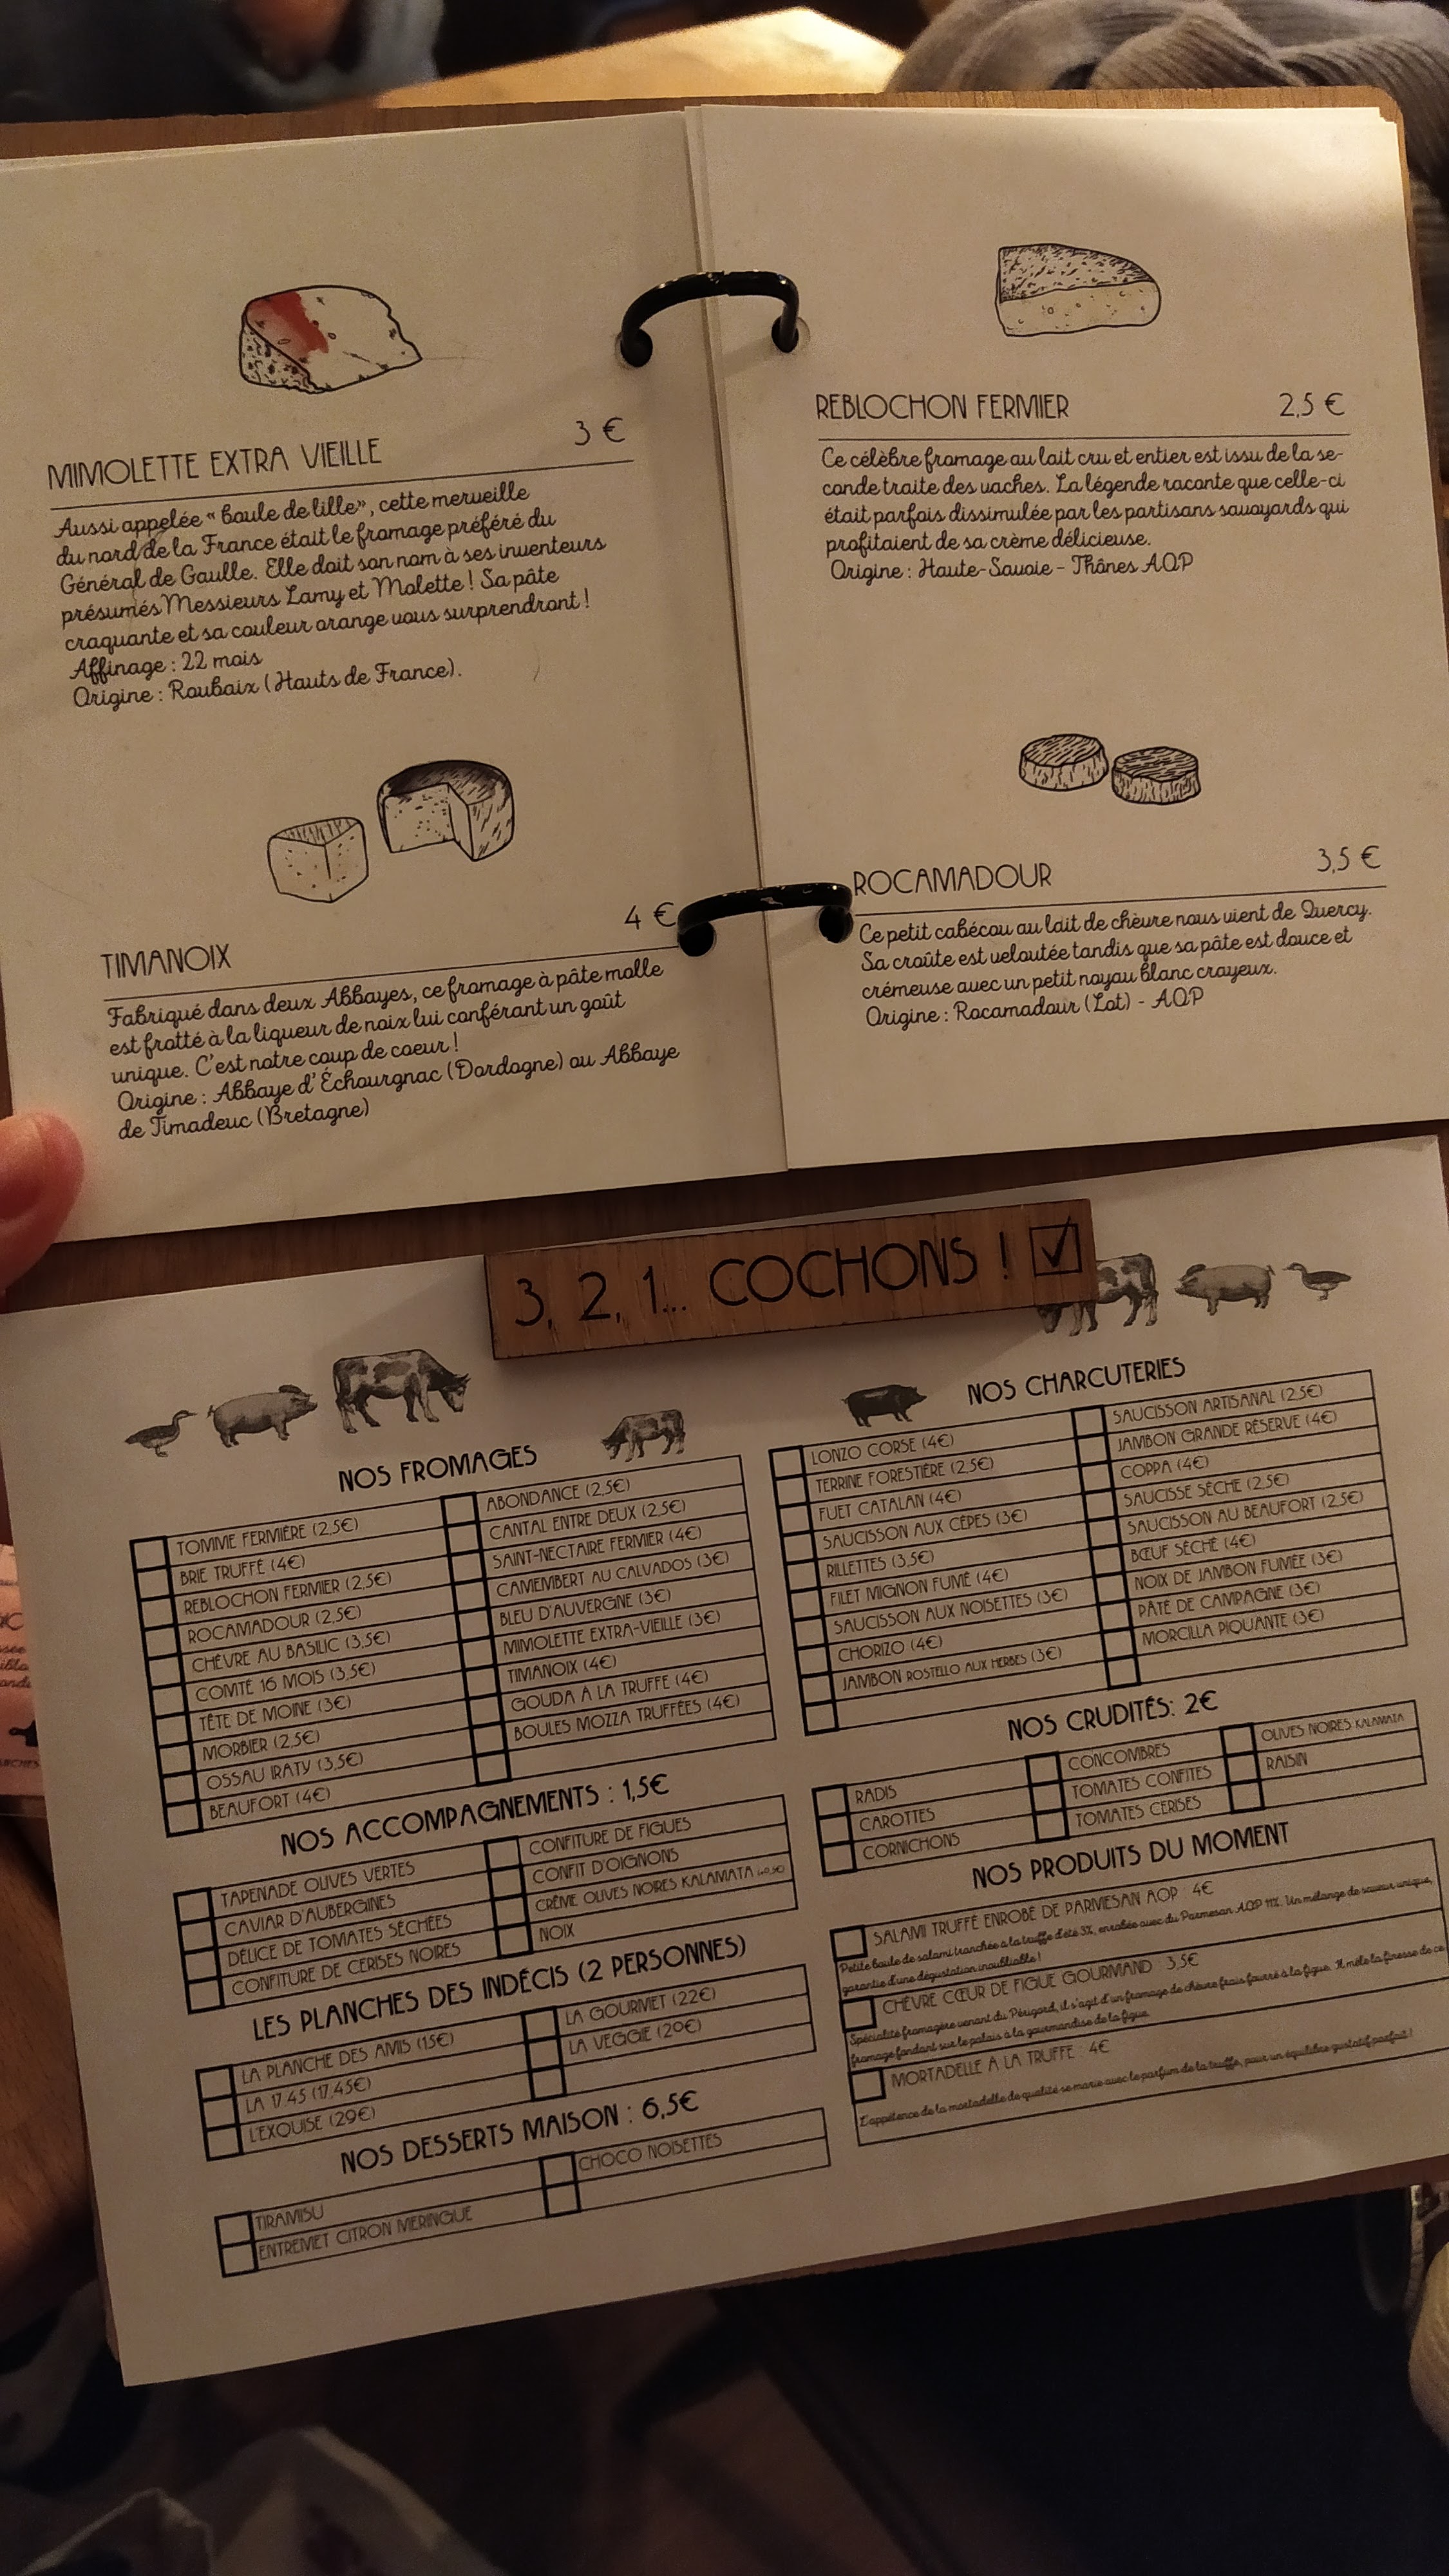 MIMOLETTE EXTRA VIEILLE 3 €
Aussi appelée « boule de lille», cette merveille
du nord de la France était le fromage préféré du
Général de Gaulle. Elle doit son nom à ses inventeurs
présumés Messieurs Lamy et Molette ! Sa pâte
craquante et sa couleur orange vous surprendront !
Affinage : 22 mois
Origine : Roubaix (Hauts de France).
TIMANOIX 4 €
Fabriqué dans deux Abbayes, ce fromage à pâte molle
est frotté à la liqueur de noix lui conférant un goût
unique. C'est notre coup de coeur !
Origine : Abbaye d'Échourgnac (Dordogne) ou Abbaye
de Timadeuc (Bretagne)
REBLOCHON FERMIER 2,5 €
Ce célèbre fromage au lait cru et entier est issu de la se-
conde traite des vaches. La légende raconte que celle-ci
était parfois dissimulée par les partisans savoyards qui
profitaient de sa crème délicieuse.
Origine : Haute-Savoie - Thônes AOP
ROCAMADOUR 3,5 €
Ce petit cabécou au lait de chèvre nous vient de Quercy.
Sa croûte est veloutée tandis que sa pâte est douce et
crémeuse avec un petit noyau blanc crayeux.
Origine : Rocamadour (Lot) - AOP
3, 2, 1... COCHONS !
NOS FROMAGES
TOMME FERMIÈRE (2,5€)
BRIE TRUFFÉ (4€)
REBLOCHON FERMIER (2,5€)
ROCAMADOUR (2,5€)
CHÈVRE AU BASILIC (3,5€)
COMTÉ 16 MOIS (3,5€)
TÊTE DE MOINE (3€)
MORBIER (2,5€)
OSSAU IRATY (3,5€)
BEAUFORT (4€)
ABONDANCE (2,5€)
CANTAL ENTRE DEUX (2,5€)
SAINT-NECTAIRE FERMIER (4€)
CAMEMBERT AU CALVADOS (3€)
BLEU D'AUVERGNE (3€)
MIMOLETTE EXTRA-VIEILLE (3€)
TIMANOIX (4€)
GOUDA À LA TRUFFE (4€)
BOULES MOZZA TRUFFÉES (4€)
NOS ACCOMPAGNEMENTS : 1,5€
TAPENADE OLIVES VERTES
CAVIAR D'AUBERGINES
DÉLICE DE TOMATES SÉCHÉES
CONFITURE DE CERISES NOIRES
CONFITURE DE FIGUES
CONFIT D'OIGNONS
CRÈME OLIVES NOIRES KALAMATA (+0,5€)
NOIX
LES PLANCHES DES INDÉCIS (2 PERSONNES)
LA PLANCHE DES AMIS (15€)
LA 17.45 (17,45€)
L'EXQUISE (29€)
LA GOURMET (22€)
LA VEGGIE (20€)
NOS DESSERTS MAISON : 6,5€
TIRAMISU
ENTREMET CITRON MERINGUE
CHOCO NOISETTES
NOS CHARCUTERIES
LONZO CORSE (4€)
TERRINE FORESTIÈRE (2,5€)
FUET CATALAN (4€)
SAUCISSON AUX CÈPES (3€)
RILLETTES (3,5€)
FILET MIGNON FUMÉ (4€)
SAUCISSON AUX NOISETTES (3€)
CHORIZO (4€)
JAMBON ROSTELLO AUX HERBES (3€)
SAUCISSON ARTISANAL (2,5€)
JAMBON GRANDE RÉSERVE (4€)
COPPA (4€)
SAUCISSE SÈCHE (2,5€)
SAUCISSON AU BEAUFORT (2,5€)
BŒUF SÉCHÉ (4€)
NOIX DE JAMBON FUMÉE (3€)
PÂTÉ DE CAMPAGNE (3€)
MORCILLA PIQUANTE (3€)
NOS CRUDITÉS: 2€
RADIS
CAROTTES
CORNICHONS
CONCOMBRES
TOMATES CONFITES
TOMATES CERISES
OLIVES NOIRES KALAMATA
RAISIN
NOS PRODUITS DU MOMENT
SALAMI TRUFFÉ ENROBÉ DE PARMESAN AOP : 4€
Petite boule de salami tranchée à la truffe d'été 3%, enrobée avec du Parmesan AOP 11%. Un mélange de saveur unique,
garantie d'une dégustation inoubliable !
CHÈVRE CŒUR DE FIGUE GOURMAND : 3,5€
Spécialité fromagère venant du Périgord, il s'agit d'un fromage de chèvre frais fourré à la figue. Il mêle la finesse de ce
fromage fondant sur le palais à la gourmandise de la figue.
MORTADELLE À LA TRUFFE : 4€
L'appétence de la mortadelle de qualité se marie avec le parfum de la truffe, pour un équilibre gustatif parfait !